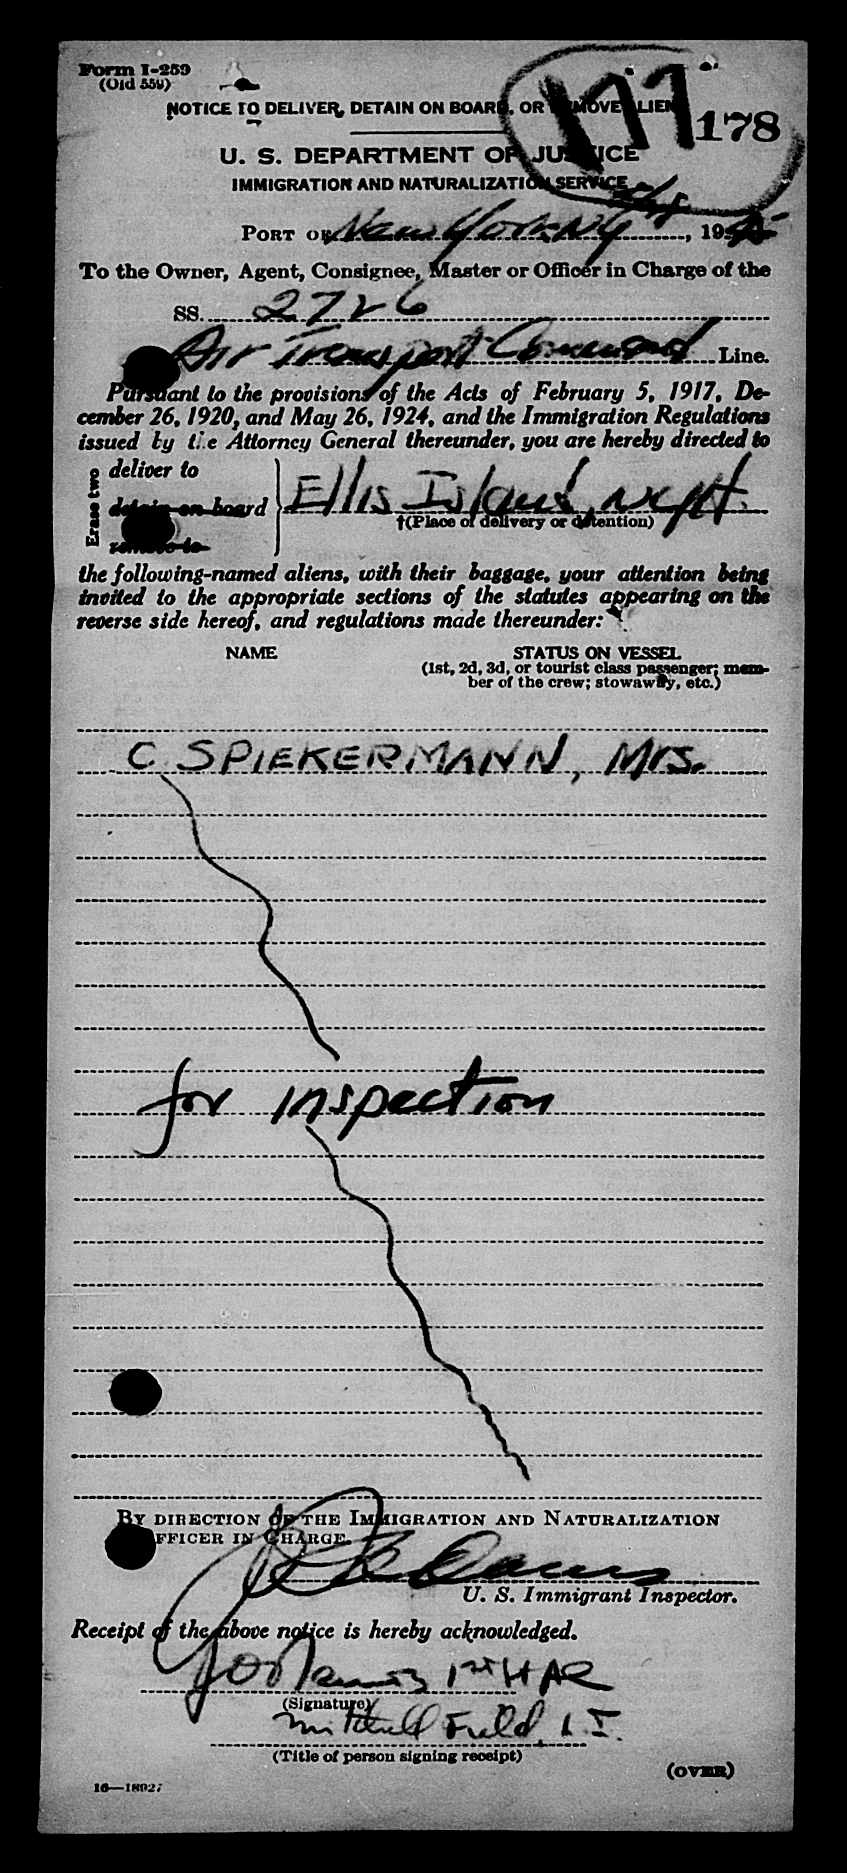 Form I-259
(Old 559)
177
178
NOTICE TO DELIVER, DETAIN ON BOARD, OR REMOVE ALIEN
U. S. DEPARTMENT OF JUSTICE
IMMIGRATION AND NATURALIZATION SERVICE
PORT OF New York NY, 1945
To the Owner, Agent, Consignee, Master or Officer in Charge of the
SS. 2726
Air Transport Command Line.
Pursuant to the provisions of the Acts of February 5, 1917, De-
cember 26, 1920, and May 26, 1924, and the Immigration Regulations
issued by the Attorney General thereunder, you are hereby directed to
Erase two
deliver to
detain on board
remove to
Ellis Island, NYH.
†(Place of delivery or detention)
the following-named aliens, with their baggage, your attention being
invited to the appropriate sections of the statutes appearing on the
reverse side hereof, and regulations made thereunder:
NAME STATUS ON VESSEL
(1st, 2d, 3d, or tourist class passenger; mem-
ber of the crew; stowaway, etc.)
C SPIEKERMANN, Mrs.
for inspection
BY DIRECTION OF THE IMMIGRATION AND NATURALIZATION
OFFICER IN CHARGE.
U. S. Immigrant Inspector.
Receipt of the above notice is hereby acknowledged.
(Signature)
Mitchell Field, L. I.
(Title of person signing receipt)
(OVER)
16—18927